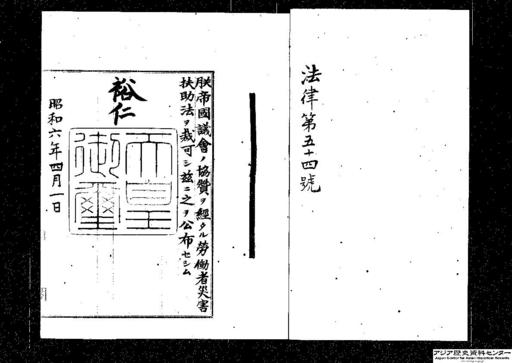 法律第五十四號
朕帝國議會ノ協贊ヲ經タル勞働者災害
扶助法ヲ裁可シ茲ニ之ヲ公布セシム
裕仁
天皇御璽
昭和六年四月一日
アジア歴史資料センター
Japan Center for Asian Historical Records